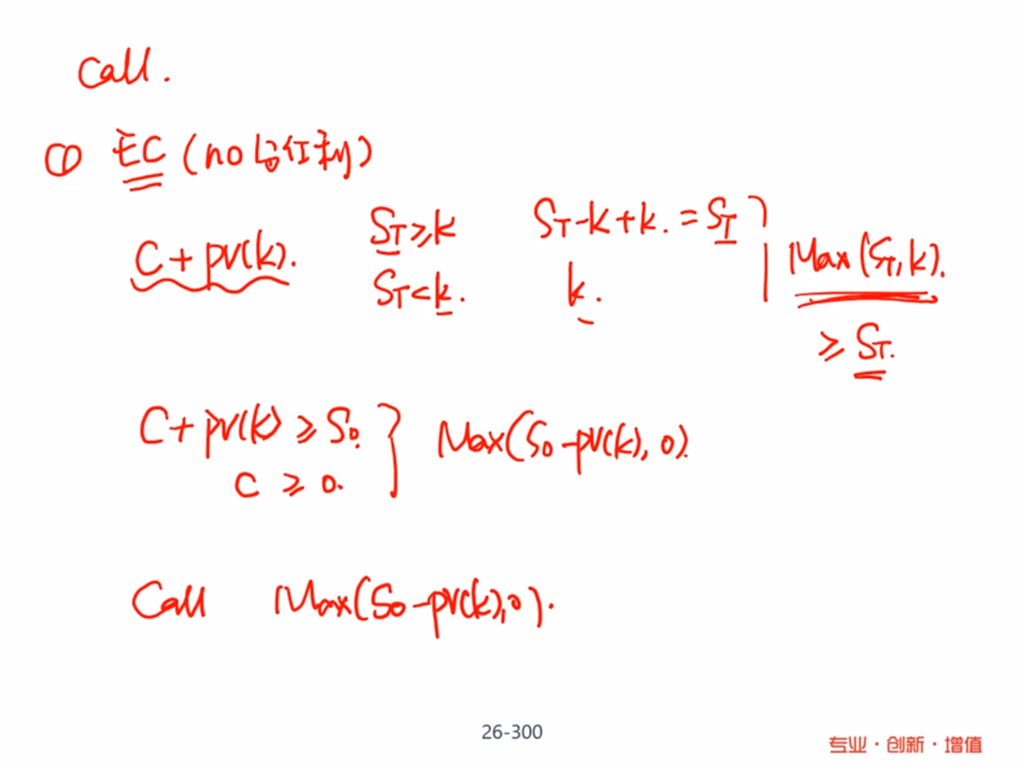 Call.
① EC (no 红利)
C + PV(k).
ST ≥ k ST - k + k. = ST
ST < k. k.
Max (ST, k).
≥ ST.
C + PV(k) ≥ S0.
C ≥ 0.
Max(S0 - PV(k), 0).
Call Max(S0 - PV(k), 0).
26-300
专业·创新·增值